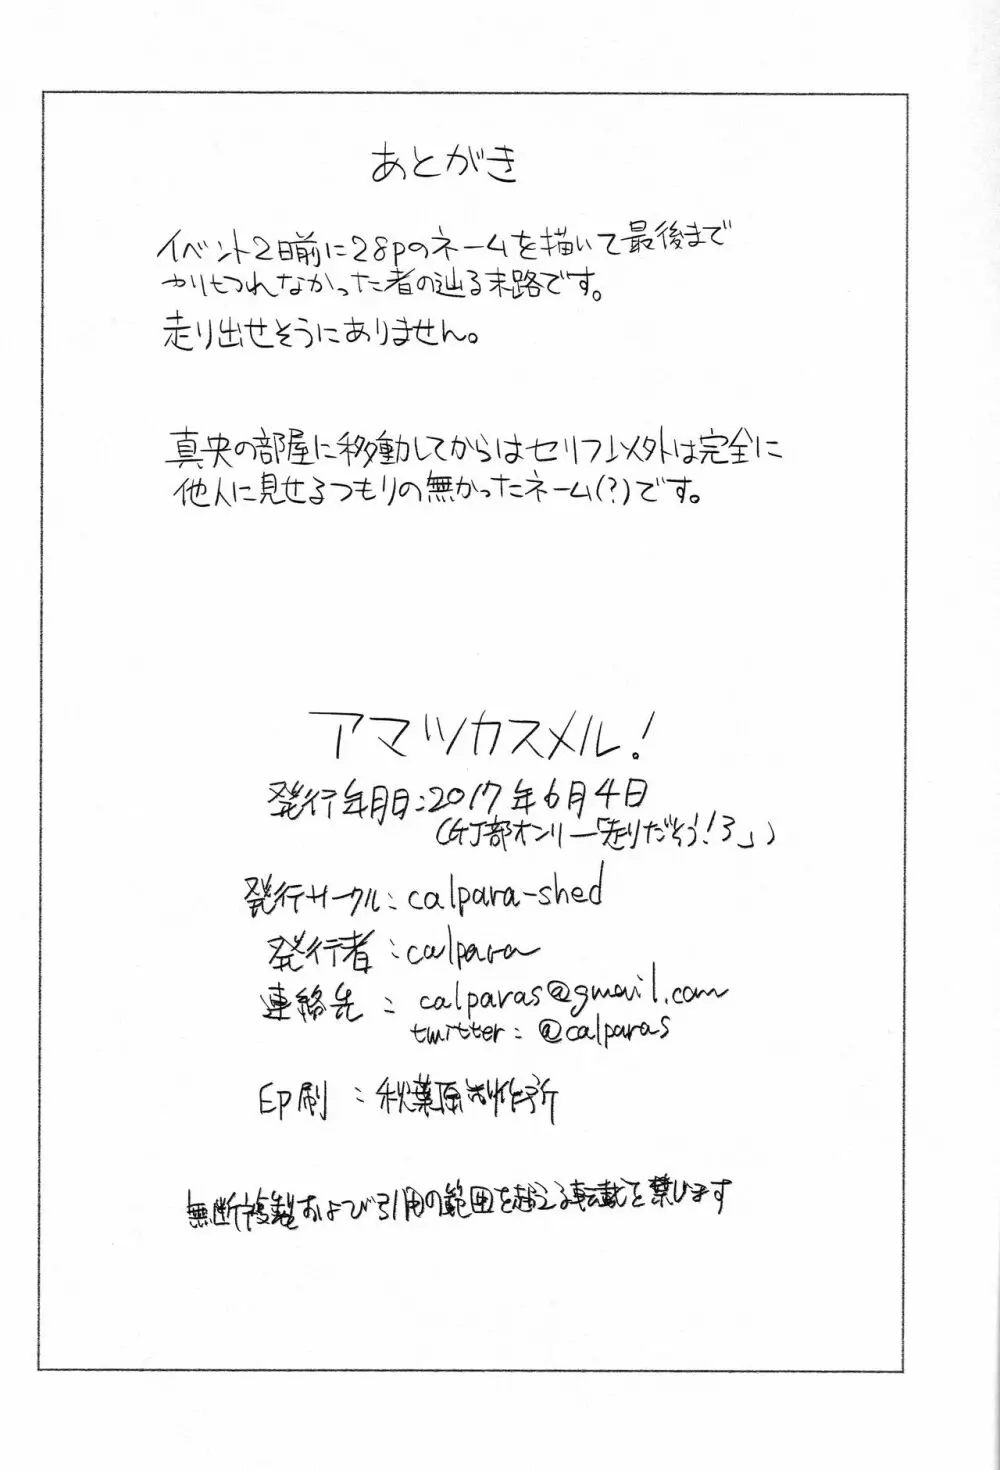 あとがき
イベント2日前に28pのネームを描いて最後まで
やりきれなかった者の辿る末路です。
走り出せそうにありません。
真央の部屋に移動してからはセリフ以外は完全に
他人に見せるつもりの無かったネーム(?)です。
アマツカスメル!
発行年月日:2017年6月4日
(GJ部オンリー「走りだそう!3」)
発行サークル:calpara-shed
発行者:calpara
連絡先:calparas@gmail.com
twitter:@calparas
印刷:秋葉原制作所
無断複製および引用の範囲を越える転載を禁じます